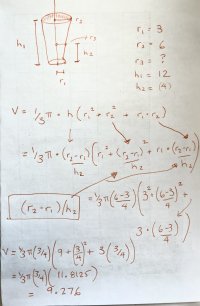 r₂
h₁
r₃
h₂
r₁
r₁ = 3
r₂ = 6
r₃ = ?
h₁ = 12
h₂ = (4)
V = 1/3 π · h (r₁² + r₂² + r₁ · r₂)
= 1/3 π · (r₂-r₁)/h₂ (r₁² + (r₂-r₁)²/h₂ + r₁ · (r₂-r₁)/h₂)
(r₂-r₁)/h₂
= 1/3 π (6-3/4) (3² + (6-3/4)² +
3 · (6-3/4))
V = 1/3 π (3/4) (9 + (3/4)² + 3 (3/4))
= 1/3 π (3/4) (11.8125)
= 9.276